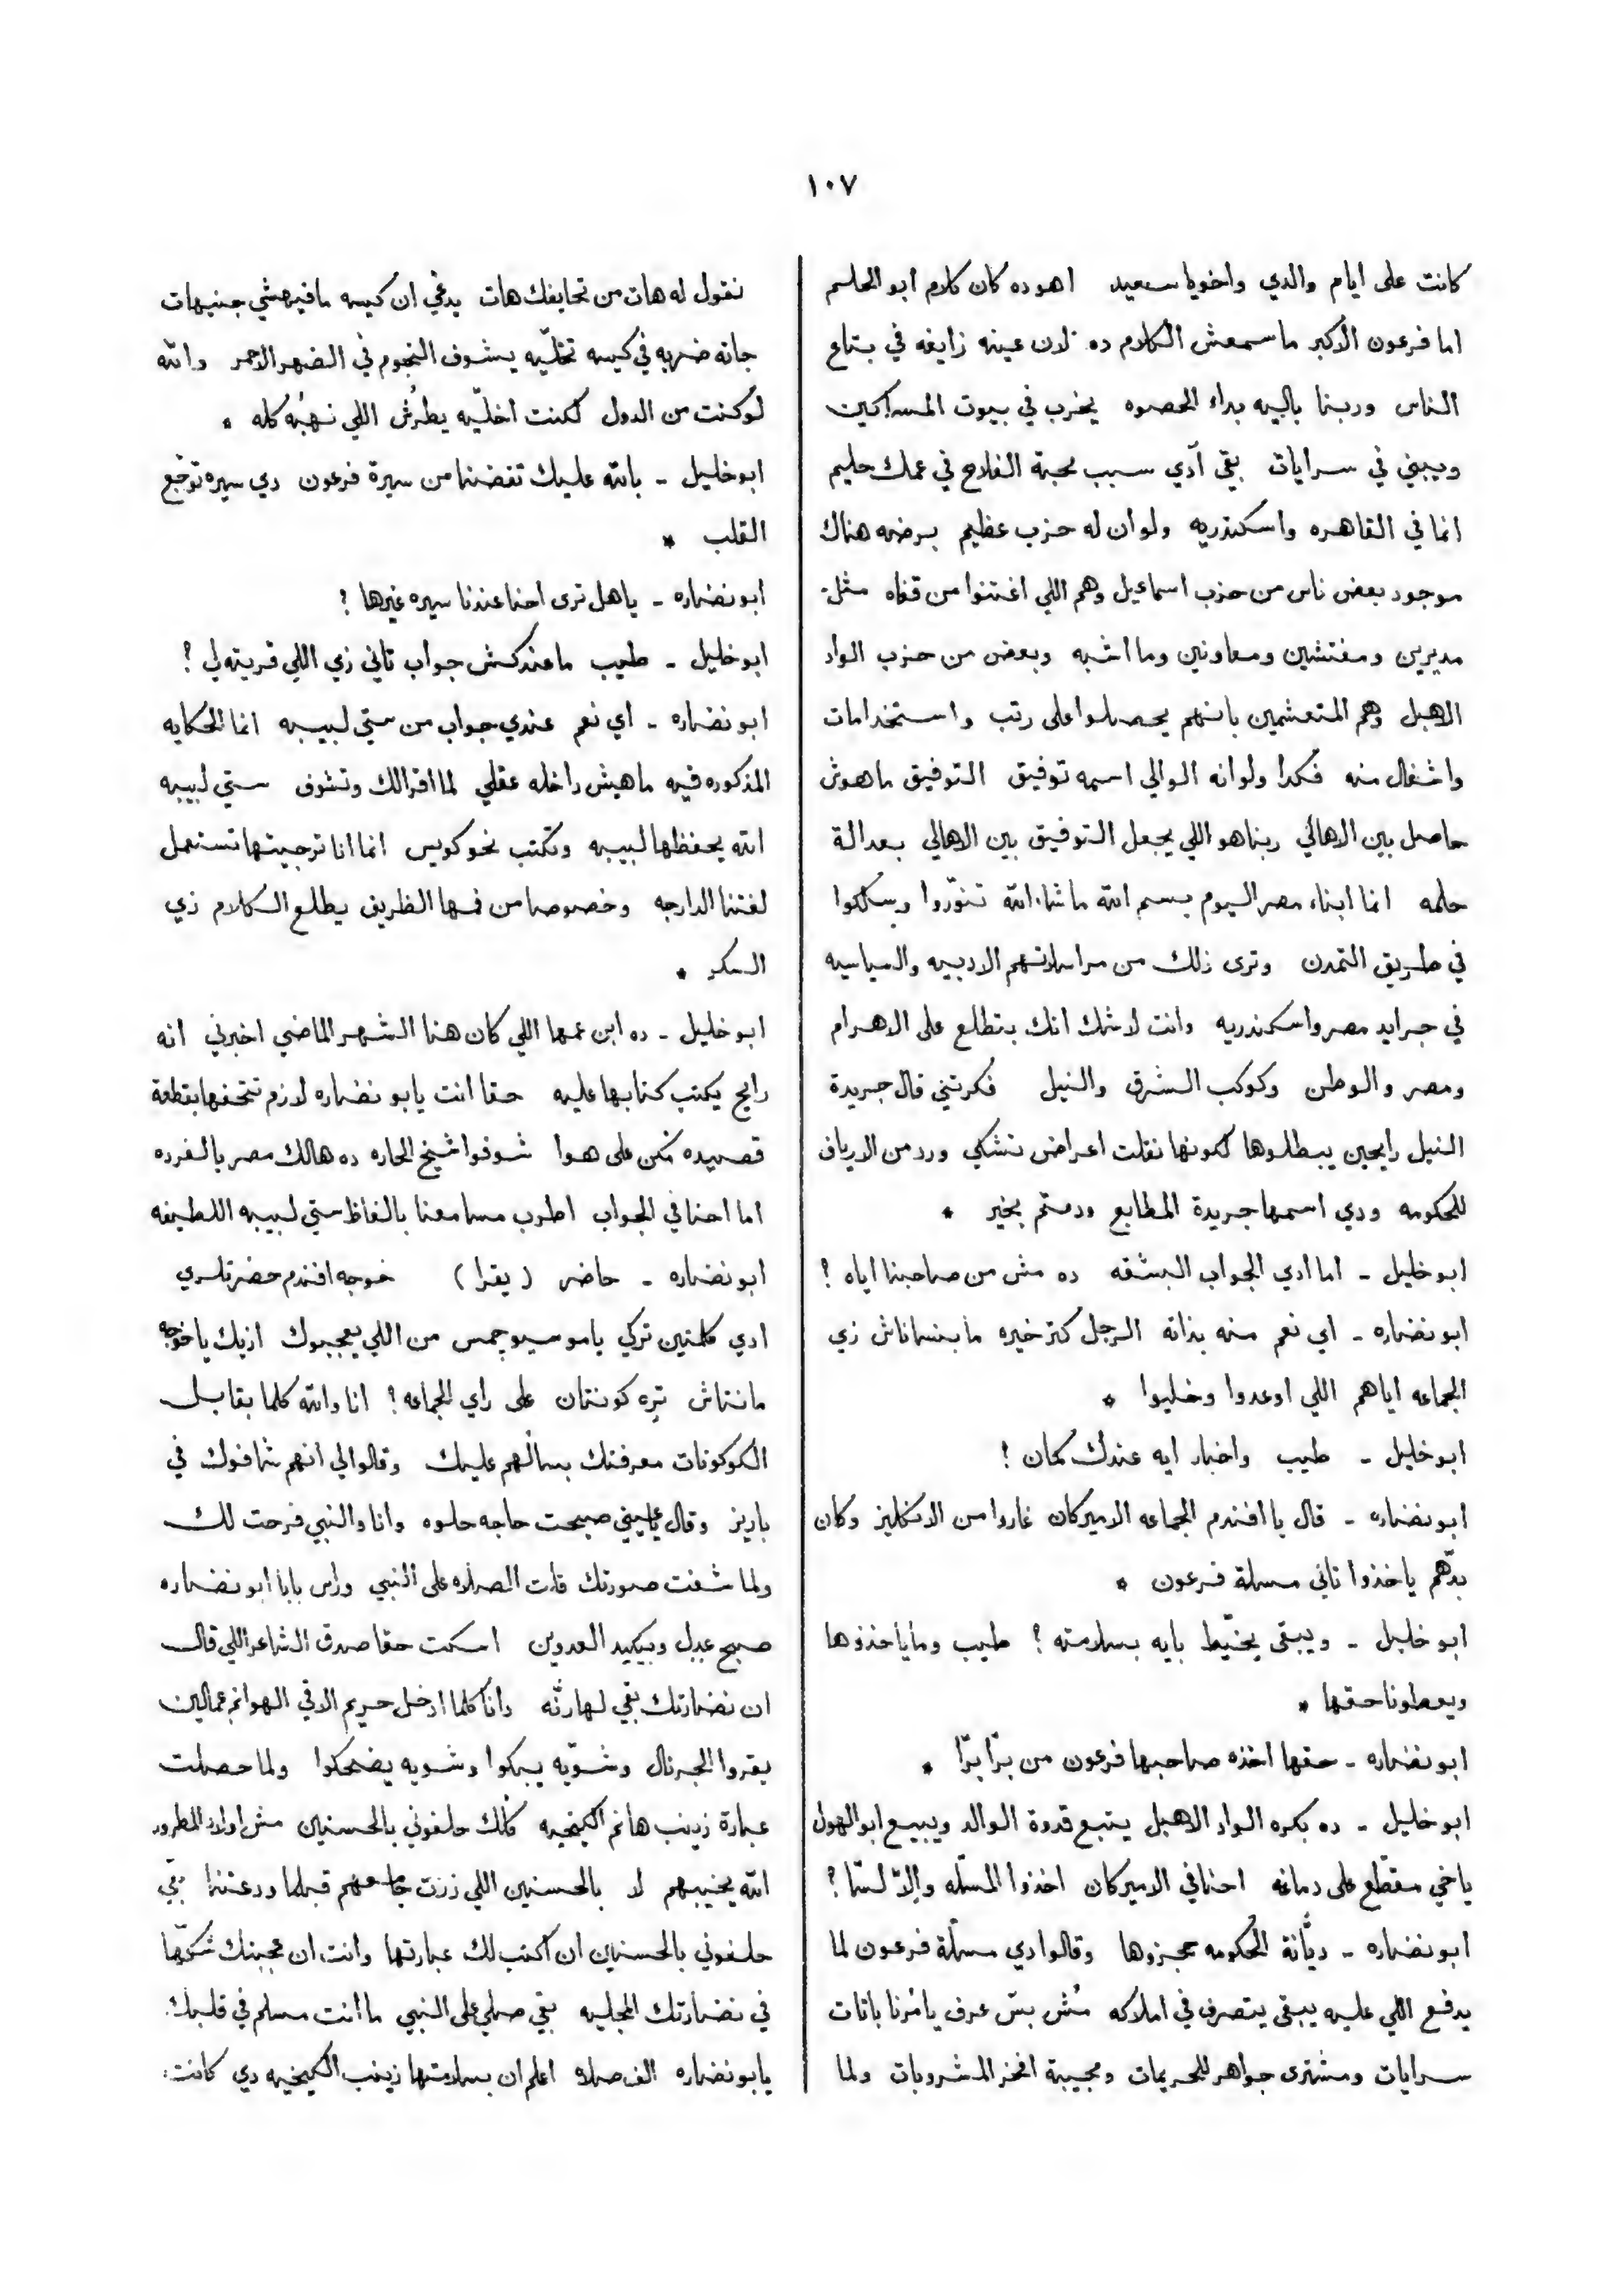 ١٠٧
كانت على ايام والدي واخويا سعيد اهوده كان كلام ابو الحلم
اما فرعون الاكبر ما سمعش الكلام ده لان عينه زايغه في بتاع
الناس وربنا باليه بداء الحصوه يخرب في بيوت المساكين
ويبني في سرايات بقى آدي سبب محبة الفلاح في عمك حليم
انما في القاهره واسكندريه ولو ان له حزب عظيم برضه هناك
موجود بعض ناس من حزب اسماعيل وهم اللي اغتنوا من قفاه مثل
مديرين ومفتشين ومعاونين وما اشبه وبعض من حزب الواد
الاهبل وهم المتعشمين بانهم يحصلوا على رتب واستخدامات
واشغال منه فكدا ولو انه الوالي اسمه توفيق التوفيق ماهوش
حاصل بين الاهالي ربنا هو اللي يجعل التوفيق بين الاهالي بعدالة
حلمه انما ابناء مصر اليوم بسم الله ما شاء الله تنوّروا وسلكوا
في طريق التمدن وترى ذلك من مراسلاتهم الادبيه والسياسيه
في جرايد مصر واسكندريه وانت لا شك انك بتطلع على الاهرام
ومصر والوطن وكوكب الشرق والنيل فكرتني قال جريدة
النيل رايحين يبطلوها لكونها نقلت اعراض تشكي ورد من الارياف
للحكومه ودي اسمها جريدة المطابع ودمتم بخير *
ابو خليل - اما ادي الجواب البشقه ده مش من صاحبنا اياه ؟
ابو نضاره - اي نعم منه بذاته الرجل كتر خيره ما بنساناش زي
الجماعه اياهم اللي اوعدوا وخليوا *
ابو خليل - طيب واخبار ايه عندك كمان ؟
ابو نضاره - قال يا افندم الجماعه الاميركان غاروا من الانكليز وكان
بدّهم ياخذوا تاني مسلة فرعون *
ابو خليل - ويبقى يخيّط بايه بسلامته ؟ طيب وما ياخذوها
ويعطونا حقها *
ابو نضاره - حقها اخذه صاحبها فرعون من برّا برّا *
ابو خليل - ده بكره الواد الاهبل يتبع قدوة الوالد ويبيع ابو الهول
ياخي مقطّع على دماغه احنا في الاميركان اخذوا المسلّه والاّ لسّا ؟
ابو نضاره - ديّانة الحكومه حجزوها وقالوا دي مسلّة فرعون لما
يدفع اللي عليه يبقى يتصرف في املاكه مُش بسّ عرف يامُرنا باتات
سرايات ومشترى جواهر للحريمات ومجيبة افخر المشروبات ولما
نقول له هات من تحايفك هات يدعي ان كيسه مافيهشي جنيهات
جاته ضربه في كيسه تخلّيه يشوف النجوم في الضهر الاحمر والله
لو كنت من الدول لكنت اخلّيه يطرُش اللي نهبُه كله *
ابو خليل - بالله عليك تفضنا من سيرة فرعون دي سيره توجع
القلب *
ابو نضاره - ياهل ترى احنا عندنا سيره غيرها ؟
ابو خليل - طيب ما عندكش جواب تاني زي اللي قريته لي ؟
ابو نضاره - اي نعم عندي جواب من ستي لبيبه انما الحكايه
المذكوره فيه ماهيش داخله عقلي لما اقرالك وتشوف ستي لبيبه
الله يحفظها لبيبه وتكتب نحو كويس انما انا ترجيتها تستعمل
لغتنا الدارجه وخصوصا من فمها الظريف يطلع الكلام زي
السكر *
ابو خليل - ده ابن عمها اللي كان هنا الشهر الماضي اخبرني انه
رايح يكتب كتابها عليه حقا انت يابو نضاره لازم تتحفها بقطعة
قصيده تكن على هوا شوفوا شيخ الحاره ده هالك مصر بالفرده
اما احنا في الجواب اطرب مسامعنا بالفاظ ستي لبيبه اللطيفه
ابو نضاره - حاضر (يقرا) خوجه افندم حضرتلري
ادي كلمتين تركي يا موسيو جمس من اللي يعجبوك ازيك يا خوجه
مانتاش تِره كونتان على راي الجماعه ؟ انا والله كلما بقابل
الكوكونات معرفتك بسالهم عليك وقالوا لي انهم شافوك في
باريز وقال يا عيني صبحت حاجه حلوه وانا والنبي فرحت لك
ولما شفت صورتك قلت الصلاه على النبي وراس بابا ابو نضاره
صبح عدل وبيكيد العدوين اسكت حقا صدق الشاعر اللي قال
ان نضارتك بقي لها رنّه وانا كلما ادخل حريم الاقي الهوانم عمالين
يقروا الجرنال وشويّه يبكوا وشويه يضحكوا ولما حصلت
عبارة زينب هانم الكيخيه كلك حلفوني بالحسنين مش اولاد المطرود
الله يخيبهم لا بالحسنين اللي زرت جامعهم قبلما ودعتنا بقى
حلفوني بالحسنين ان اكتب لك عبارتها وانت ان عجبتك شكّها
في نضارتك المجليه بقي صلي على النبي ما انت مسلم في قلبك
يابو نضاره الف صلاه اعلم ان بسلامتها زينب الكيخيه دي كانت